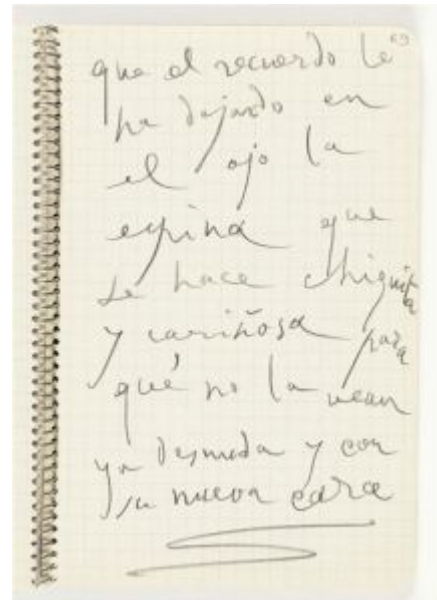 69
que el recuerdo le
ha dejado en
el ojo la
espina que
se hace chiquita
y cariñosa para
qué no la vean
ya desnuda y con
su nueva cara